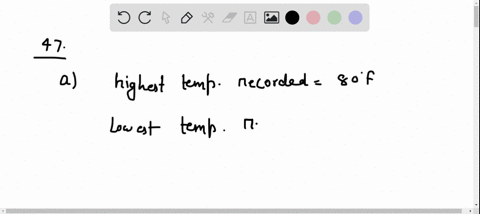 47.
a) highest temp. recorded = 80°F
Lowest temp. r